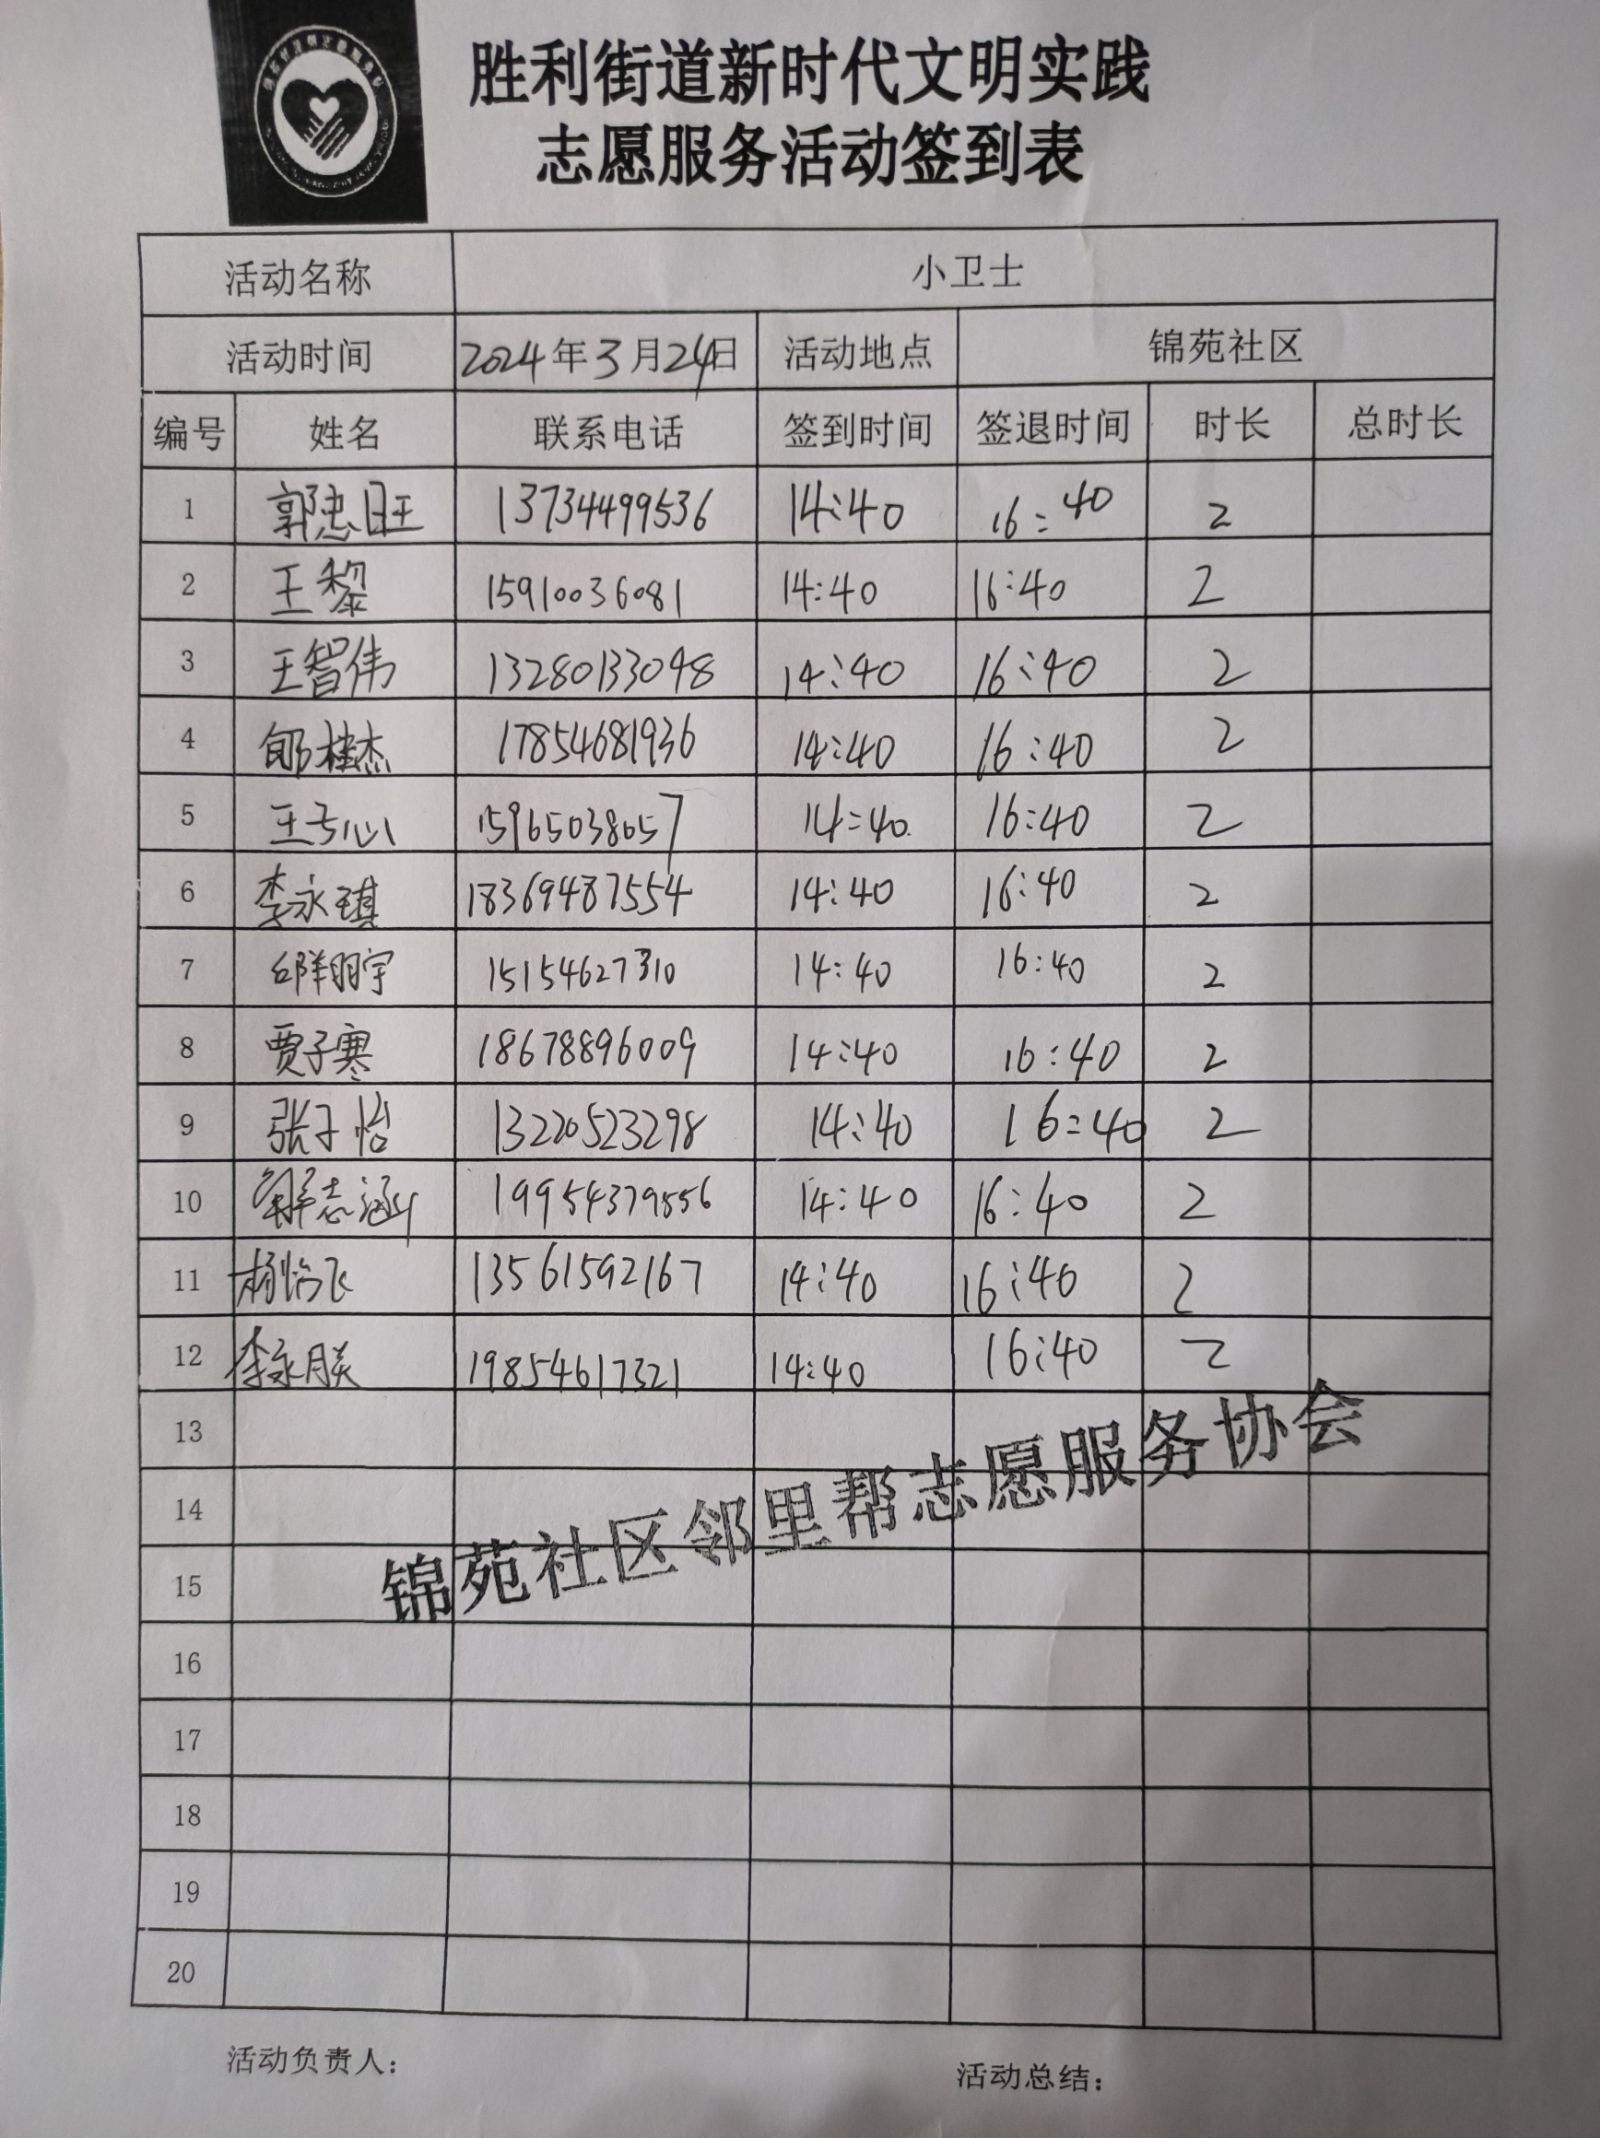 胜利街道新时代文明实践
志愿服务活动签到表
活动名称 小卫士
活动时间 2024年3月24日 活动地点 锦苑社区
编号 姓名 联系电话 签到时间 签退时间 时长 总时长
1 郭忠旺 13734499536 14:40 16:40 2
2 王黎 15910036081 14:40 16:40 2
3 王智伟 13280133098 14:40 16:40 2
4 郇桂杰 17854681936 14:40 16:40 2
5 王子心 15965038057 14:40 16:40 2
6 李永琪 18369487554 14:40 16:40 2
7 15154627310 14:40 16:40 2
8 贾子寒 18678896009 14:40 16:40 2
9 张子怡 13220523298 14:40 16:40 2
10 解志涵 19954379556 14:40 16:40 2
11 杨怡飞 13561592167 14:40 16:40 2
12 李永朕 19854617321 14:40 16:40 2
13
14
锦苑社区邻里帮志愿服务协会
15
16
17
18
19
20
活动负责人： 活动总结：